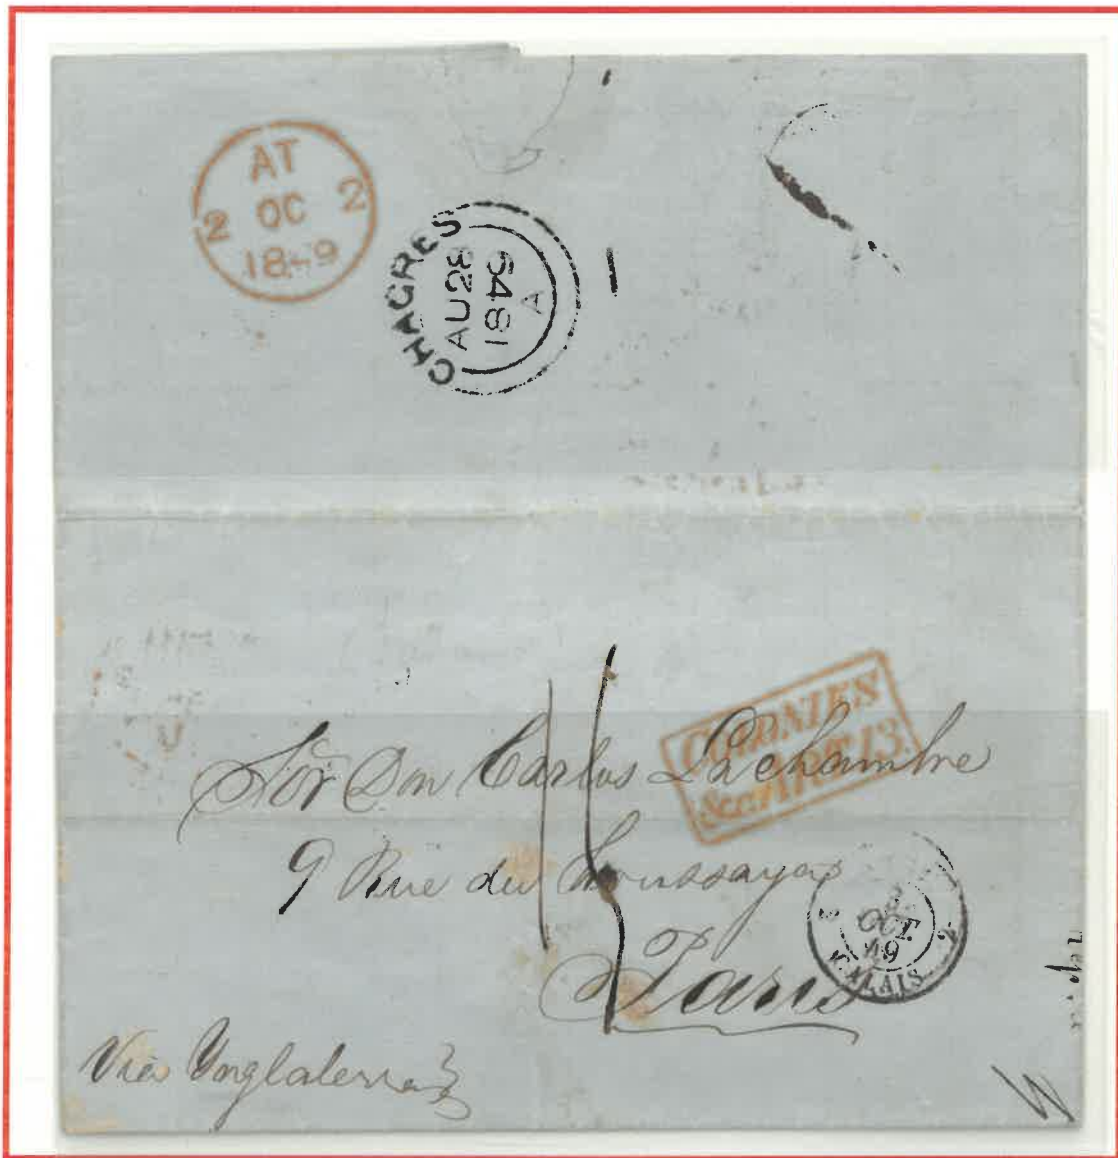 AT
2 OC 2
1849
CHAGRES
AU 28
1849
A
COLONIES
&c. ART. 13.
Sõr Don Carlos Lachambre
9 Rue du
Paris
2 OCT. 2
49
CALAIS
Via Ynglaterra